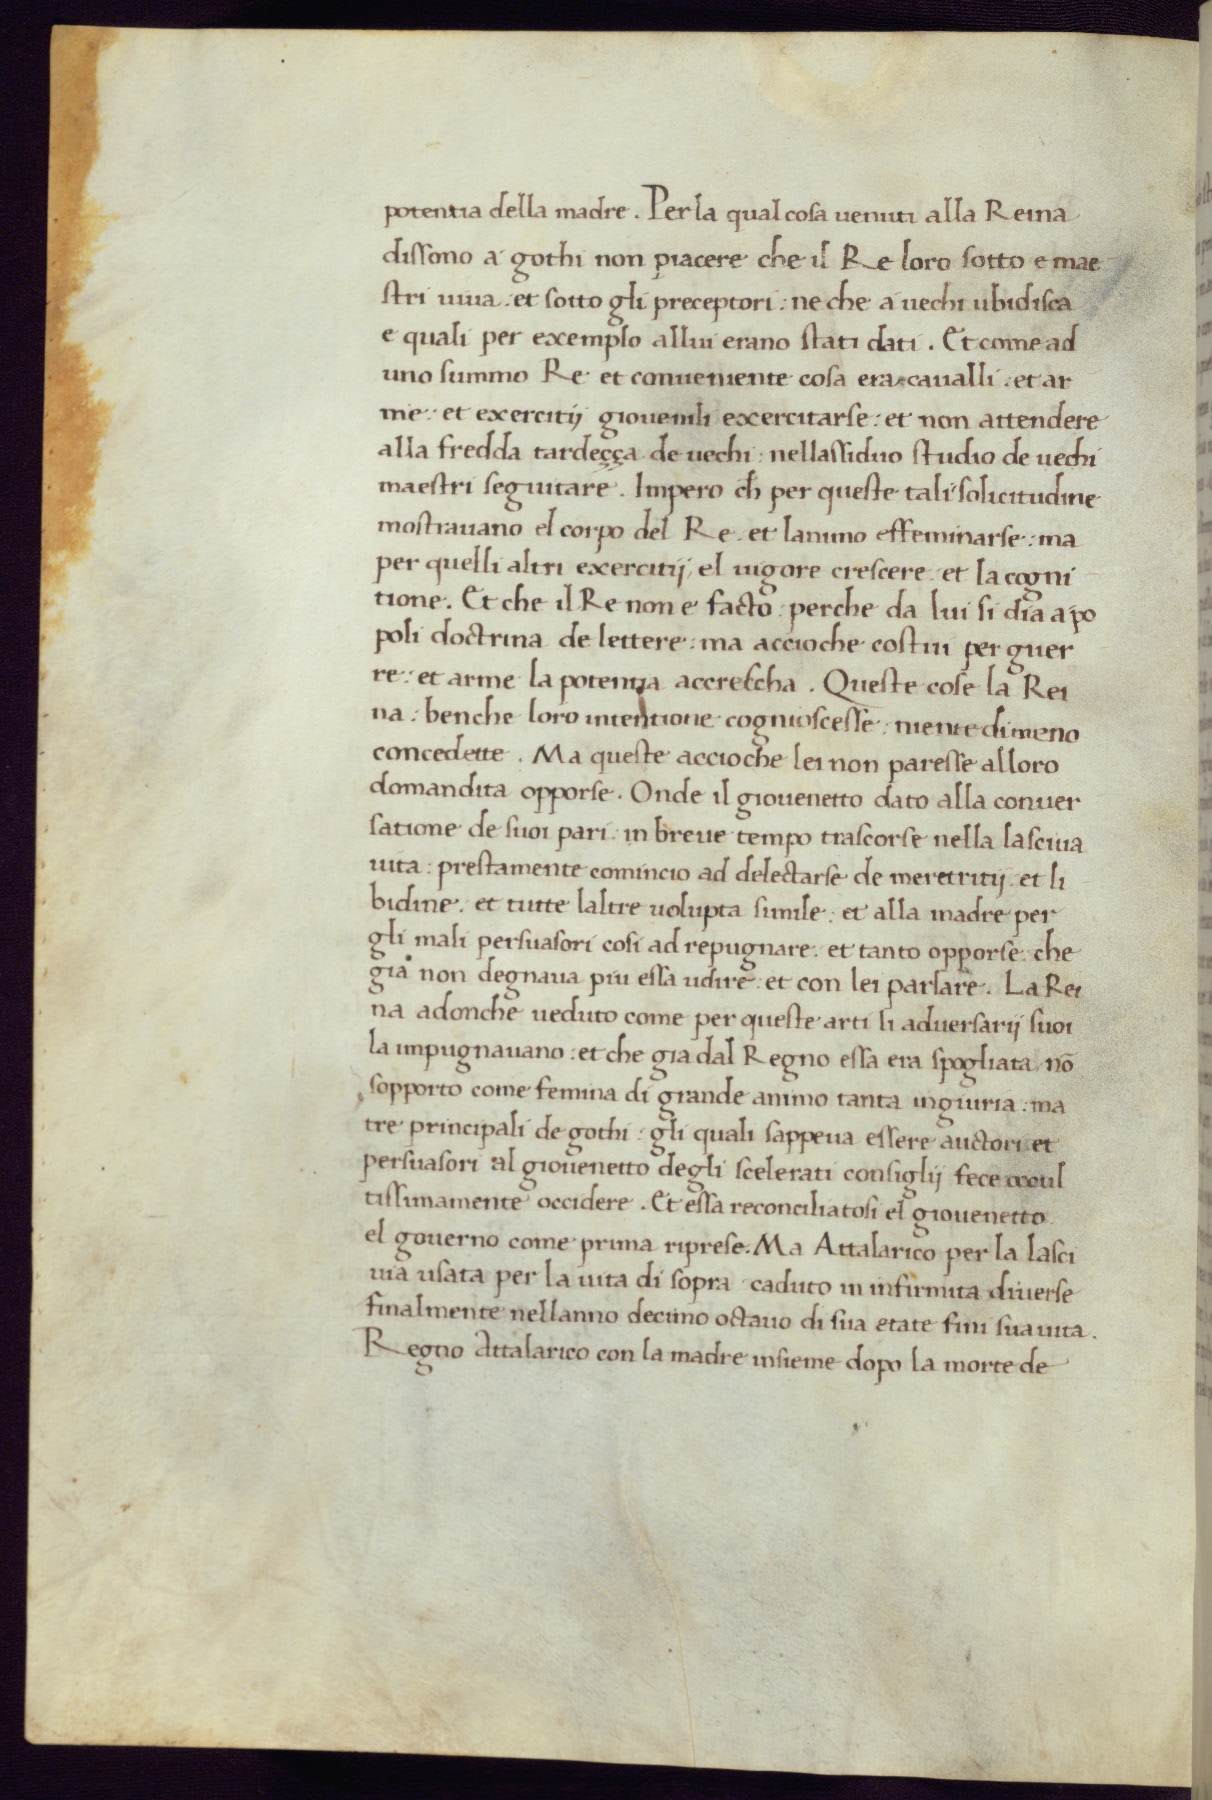 potentia della madre. Per la qual cosa uenuti alla Reina
dissono a gothi non piacere che il Re loro sotto e mae
stri uiua: et sotto gli preceptori: ne che a uechi ubidisca
e quali per exemplo allui erano stati dati. Et come ad
uno summo Re et conueniente cosa era caualli: et ar
me: et exercitij giouenili exercitarse: et non attendere
alla fredda tardeçça de uechi: nellassiduo studio de uechi
maestri seguitare. Impero ch̄ per queste tali solicitudine
mostrauano el corpo del Re. et lanimo effeminarse: ma
per quelli altri exercitij, el uigore crescere: et la cogni
tione. Et che il Re non e facto: perche da lui si dia a po
poli doctrina de lettere: ma accioche costui per guer
re: et arme la potentia accrescha. Queste cose la Rei
na: benche loro intentione cognioscesse: niente di meno
concedette. Ma queste accioche lei non paresse alloro
domandita opporse. Onde il giouenetto dato alla conuer
satione de suoi pari: in breue tempo trascorse nella lasciua
uita: prestamente comincio ad delectarse de meretritij et li
bidine. et tutte laltre uolupta simile: et alla madre per
gli mali persuasori cosi ad repugnare. et tanto opporse: che
gia non degnaua piu essa udire: et con lei parlare. La Rei
na adonche ueduto come per queste arti li aduersarij suoi
la impugnauano: et che gia dal Regno essa era spogliata, nō
sopporto come femina di grande animo tanta ingiuria: ma
tre principali de gothi: gli quali sappeua essere auctori et
persuasori al giouenetto degli scelerati consiglij fece occul
tissimamente occidere. Et essa reconciliatosi el giouenetto
el gouerno come prima riprese. Ma Attalarico per la lasci
uia usata per la uita di sopra caduto in infirmita diuerse
finalmente nellanno decimo octauo di sua etate fini sua uita.
Regno Attalarico con la madre insieme dopo la morte de